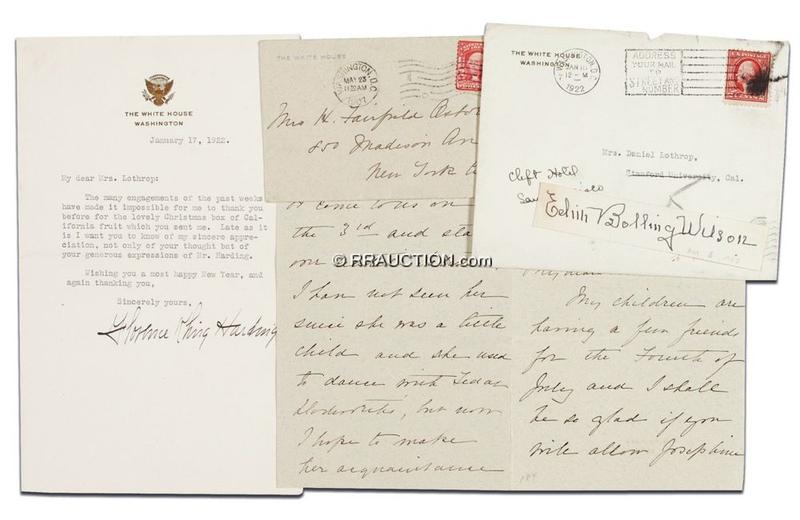 THE WHITE HOUSE
WASHINGTON
January 17, 1922.
My dear Mrs. Lothrop:
The many engagements of the past weeks
have made it impossible for me to thank you
before for the lovely Christmas box of Cal-
ifornia fruit which you sent me. Late as it
is I want you to know of my sincere appre-
ciation, not only of your thought but of
your generous expressions of Mr. Harding.
Wishing you a most happy New Year, and
again thanking you,
Sincerely yours,
Florence Kling Harding
THE WHITE HOUSE
WASHINGTON, D.C.
MAY 23
Mrs H. Fairfield Osborn
850 Madison Ave
New York
or come to us on
the 3rd and sta
our
I have not seen her
since she was a little
child and she used
to dance with
but now
I hope to make
her acquaintance
THE WHITE HOUSE
WASHINGTON
WASHINGTON, D.C.
JAN 18
12 - M
1922
ADDRESS
YOUR MAIL
TO
STREET AND
NUMBER
Mrs. Daniel Lothrop,
Stanford University, Cal.
Clift Hotel
San
Edith Bolling Wilson
My children are
having a few friends
for the Fourth of
July and I shall
be so glad if you
will allow Josephine
© RRAUCTION.com